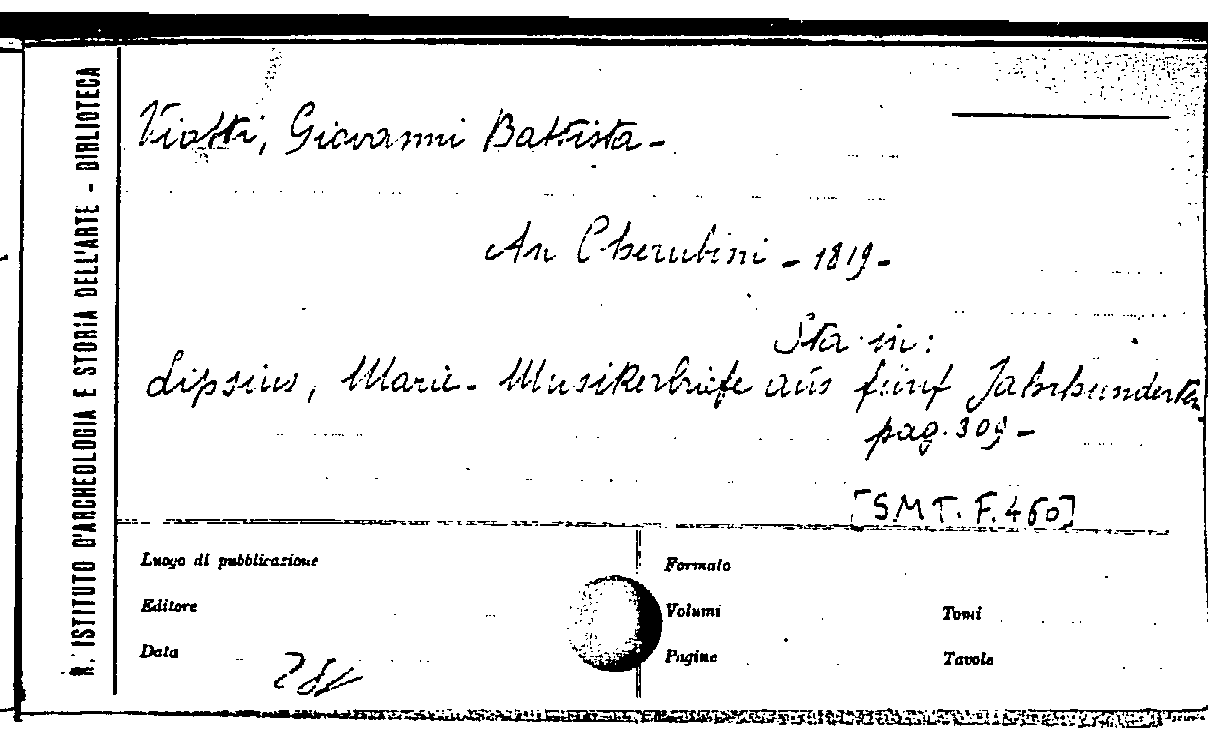 R. ISTITUTO D'ARCHEOLOGIA E STORIA DELL'ARTE - BIBLIOTECA
Viotti, Giovanni Battista -
An Cherubini - 1819 -
Sta in:
Lipsius, Marie - Musikerbriefe aus fünf Jahrhunderten
pag. 309 -
[S.M T. F. 460]
Luogo di pubblicazione
Formato
Editore
Volumi
Tomi
Data
Pagine
Tavole